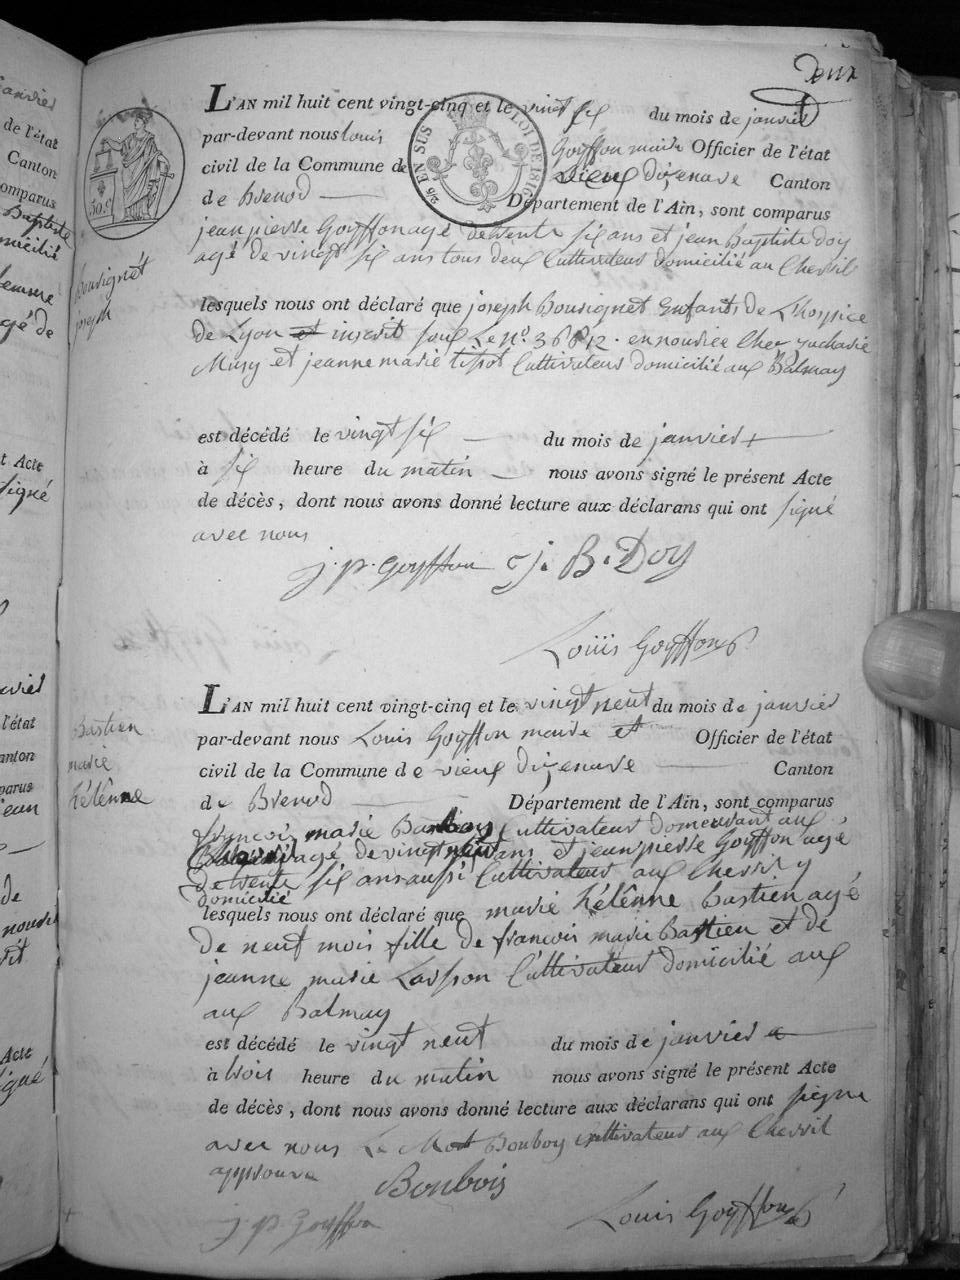 Deux
L'AN mil huit cent vingt-cinq et le vingt six du mois de janvier
par-devant nous louis Goyffon maire Officier de l'état
civil de la Commune de vieux dizenave Canton
de Brenod Département de l'Ain, sont comparus
jean pierre Goyffon agé de trente six ans et jean Baptiste Doy
agé de vingt six ans tous deux Cultivateurs domicilié au Chevril
Bousignet
joseph
lesquels nous ont déclaré que joseph Bousignet Enfants de L'hospice
de Lyon et inscrit sous Le N.º en nourice Chez zacharie
Miny et jeanne marie tissot Cultivateurs domicilié aux Balmay
est décédé le vingt six du mois de janvier
à six heure du matin nous avons signé le présent Acte
de décès, dont nous avons donné lecture aux déclarans qui ont signé
avec nous
j. p. Goyffon j. B. Doy
Louis Goyffon
L'AN mil huit cent vingt-cinq et le vingt neuf du mois de janvier
Bastien
marie
hélênne
par-devant nous Louis Goyffon maire et Officier de l'état
civil de la Commune de vieux dizenave Canton
de Brenod Département de l'Ain, sont comparus
françois marie Cultivateur demeurant aux
agé de vingt neuf ans et jean pierre Goyffon agé
de trente six ans aussi Cultivateur aux Chevril y
domicilié
lesquels nous ont déclaré que marie hélênne Bastien agé
de neuf mois fille de françois marie Bastien et de
jeanne marie Lasson Cultivateur domicilié aux
aux Balmay
est décédé le vingt neuf du mois de janvier
à trois heure du matin nous avons signé le présent Acte
de décès, dont nous avons donné lecture aux déclarans qui ont signé
avec nous Le Mot Bonboy Cultivateur aux Chevril
approuvé
Bonbois
j. p. Goyffon Louis Goyffon
2/6 EN SUS LOI DE 1816